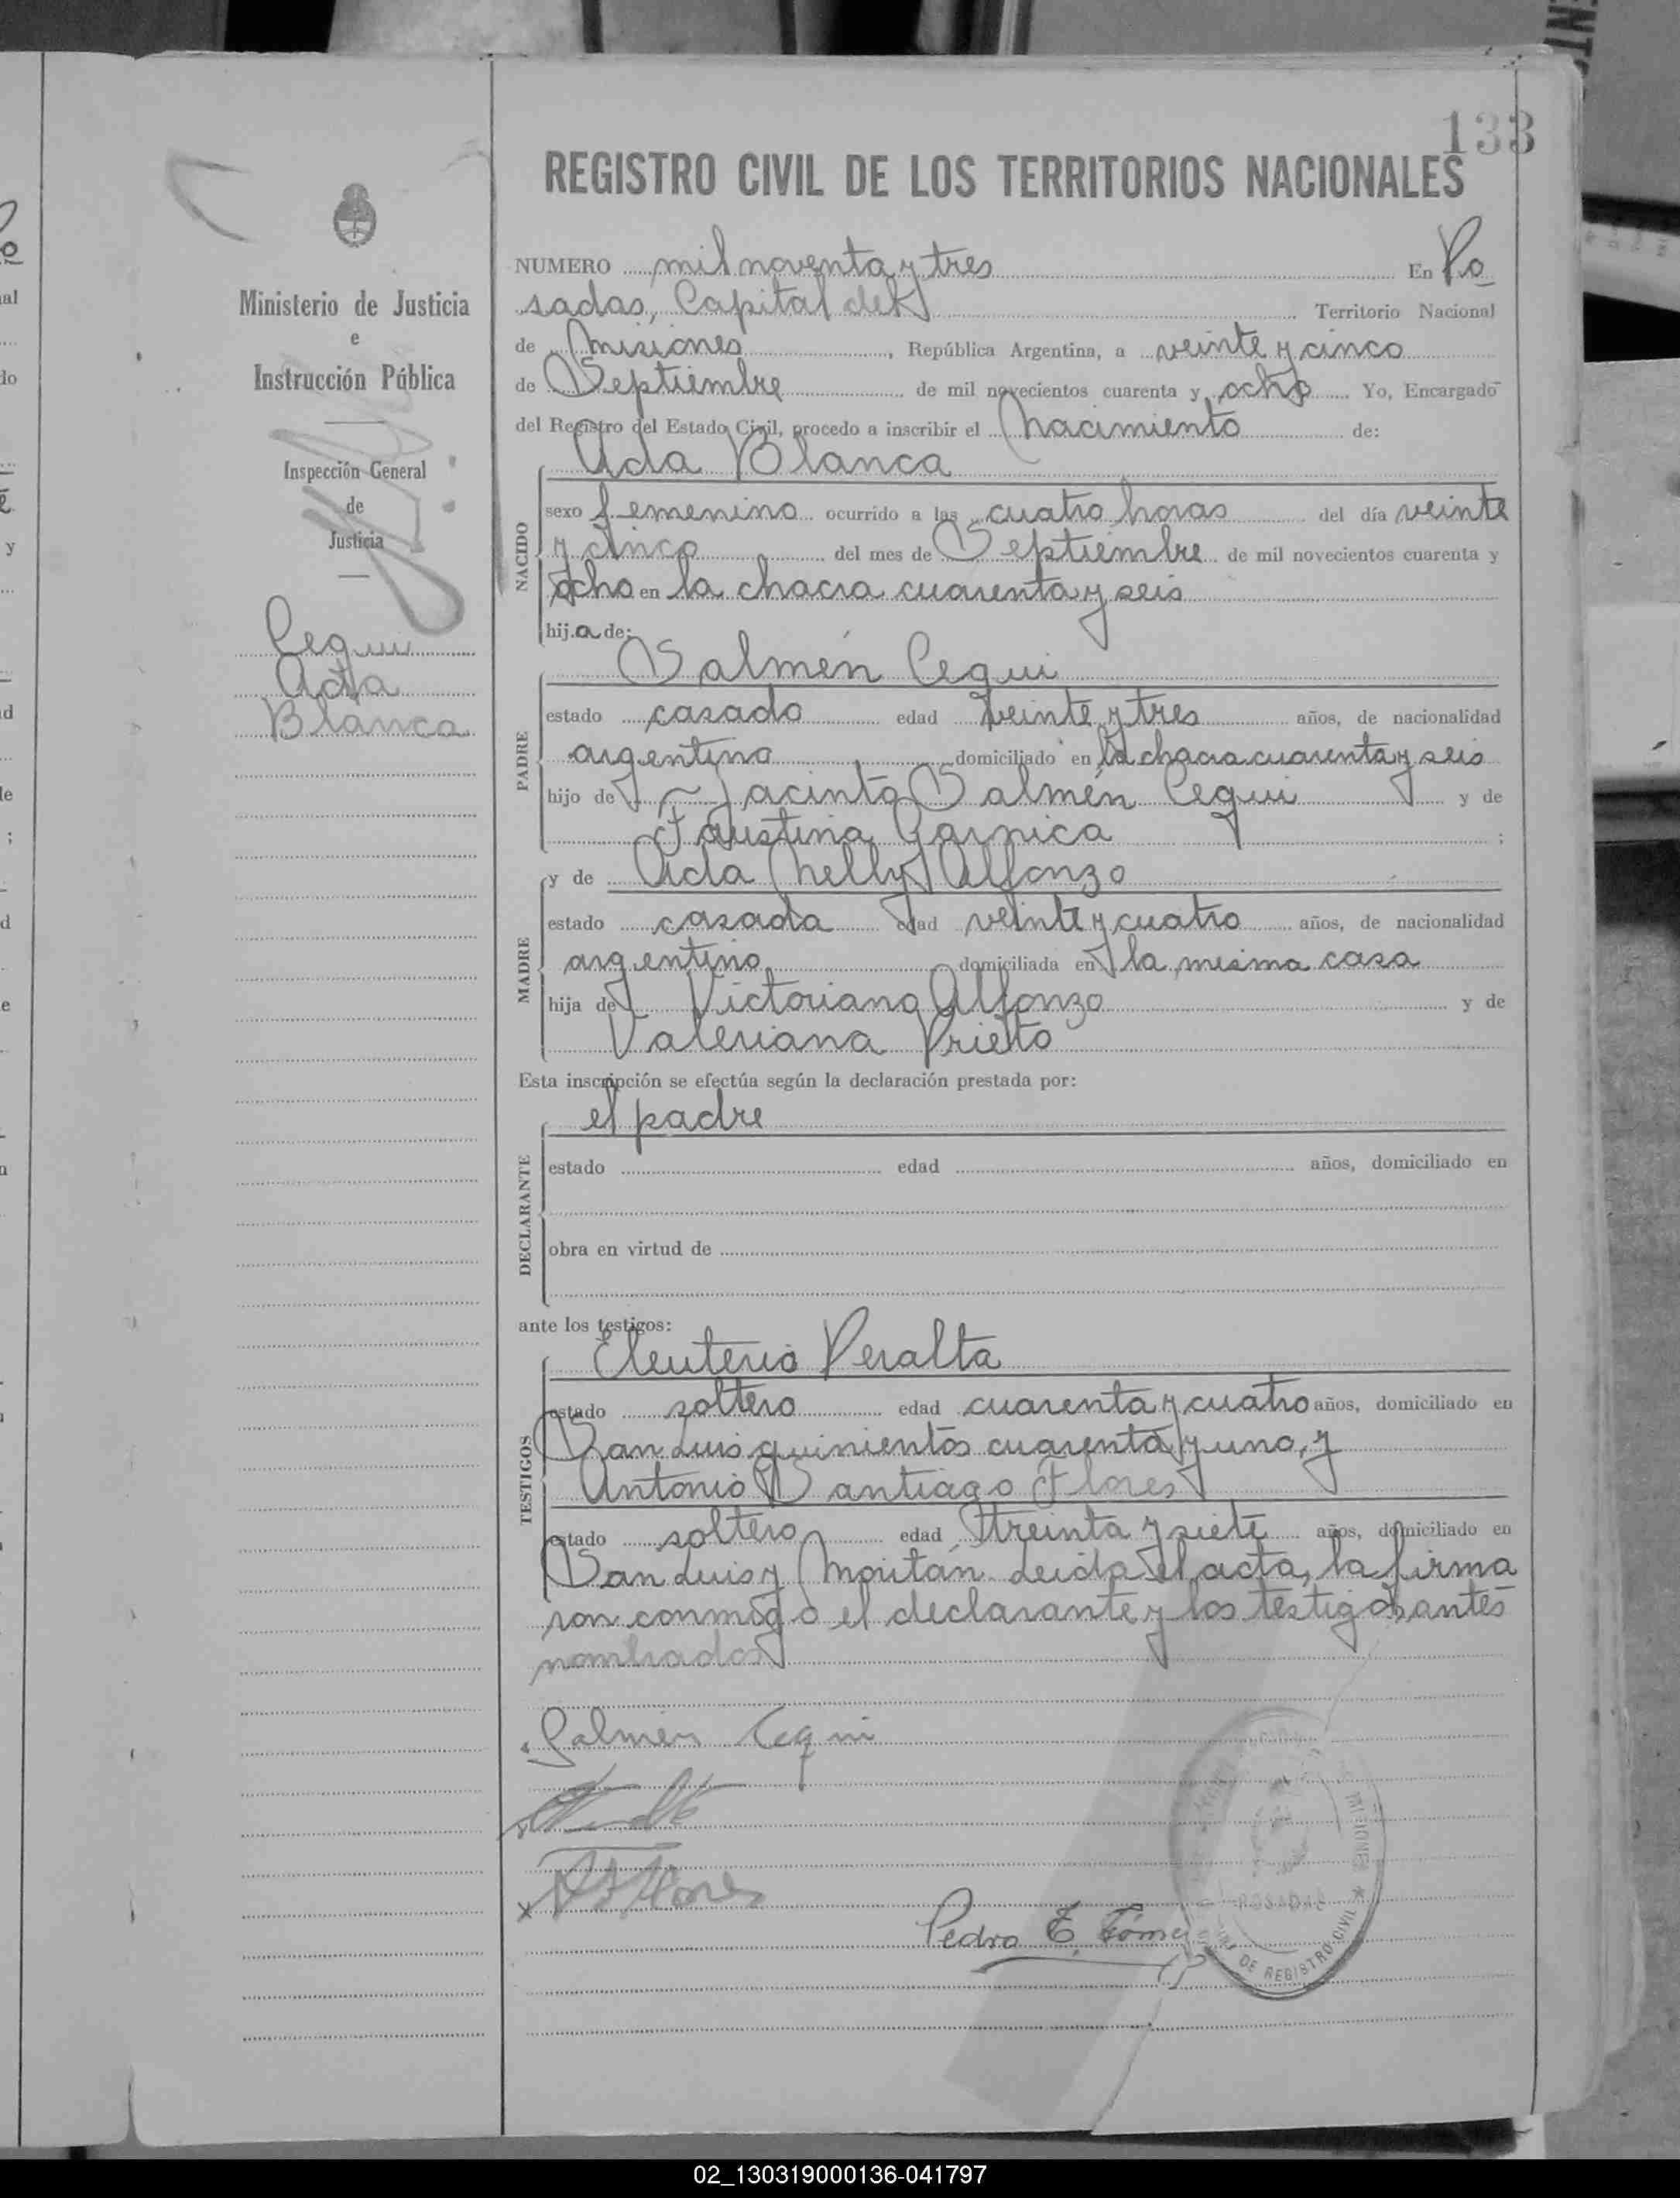 133
REGISTRO CIVIL DE LOS TERRITORIOS NACIONALES
Ministerio de Justicia
e
Instrucción Pública
Inspección General
de
Justicia
Cequi
Ada
Blanca
NUMERO mil noventa y tres En Po
sadas, Capital del Territorio Nacional
de Misiones, República Argentina, a veinte y cinco
de Septiembre de mil novecientos cuarenta y ocho Yo, Encargado
del Registro del Estado Civil, procedo a inscribir el Nacimiento de:
NACIDO
Ada Blanca
sexo femenino ocurrido a las cuatro horas del día veinte
y cinco del mes de Septiembre de mil novecientos cuarenta y
ocho en la chacra cuarenta y seis
hija de:
PADRE
Salmén Cequi
estado casado edad veinte y tres años, de nacionalidad
argentino domiciliado en la chacra cuarenta y seis
hijo de Jacinto Salmén Cequi y de
Faustina Garnica ;
MADRE
y de Ada Nelly Alfonzo
estado casada edad veinte y cuatro años, de nacionalidad
argentino domiciliada en la misma casa
hija de Victoriano Alfonzo y de
Valeriana Prieto
Esta inscripción se efectúa según la declaración prestada por:
DECLARANTE
el padre
estado edad años, domiciliado en
obra en virtud de
ante los testigos:
TESTIGOS
Eleuterio Peralta
estado soltero edad cuarenta y cuatro años, domiciliado en
San Luis quinientos cuarenta y uno, y
Antonio Santiago Flores
estado soltero edad treinta y siete años, domiciliado en
San Luis y Moritán. Leida el acta, la firma
ron conmigo el declarante y los testigos, antes
nombrados
Salmén Cequi
A S Flores
Pedro E. Gómez
MISIONES
POSADAS
DE REGISTRO CIVIL
02_130319000136-041797